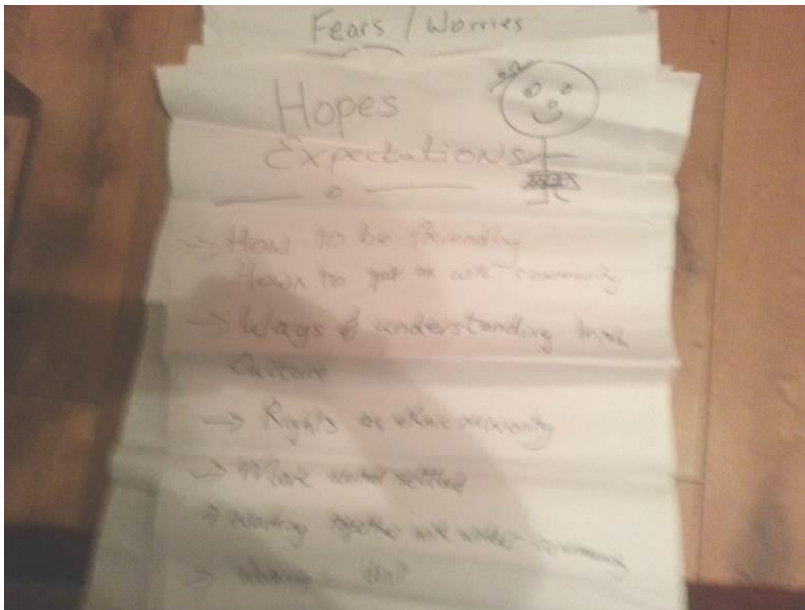 Fears / Worries
Hopes
Expectations
→ How to be friendly
How to get on with community
→ Ways of understanding Irish
Culture
→ Rights as ethnic minority
→ More
→ Working together with wider community
→